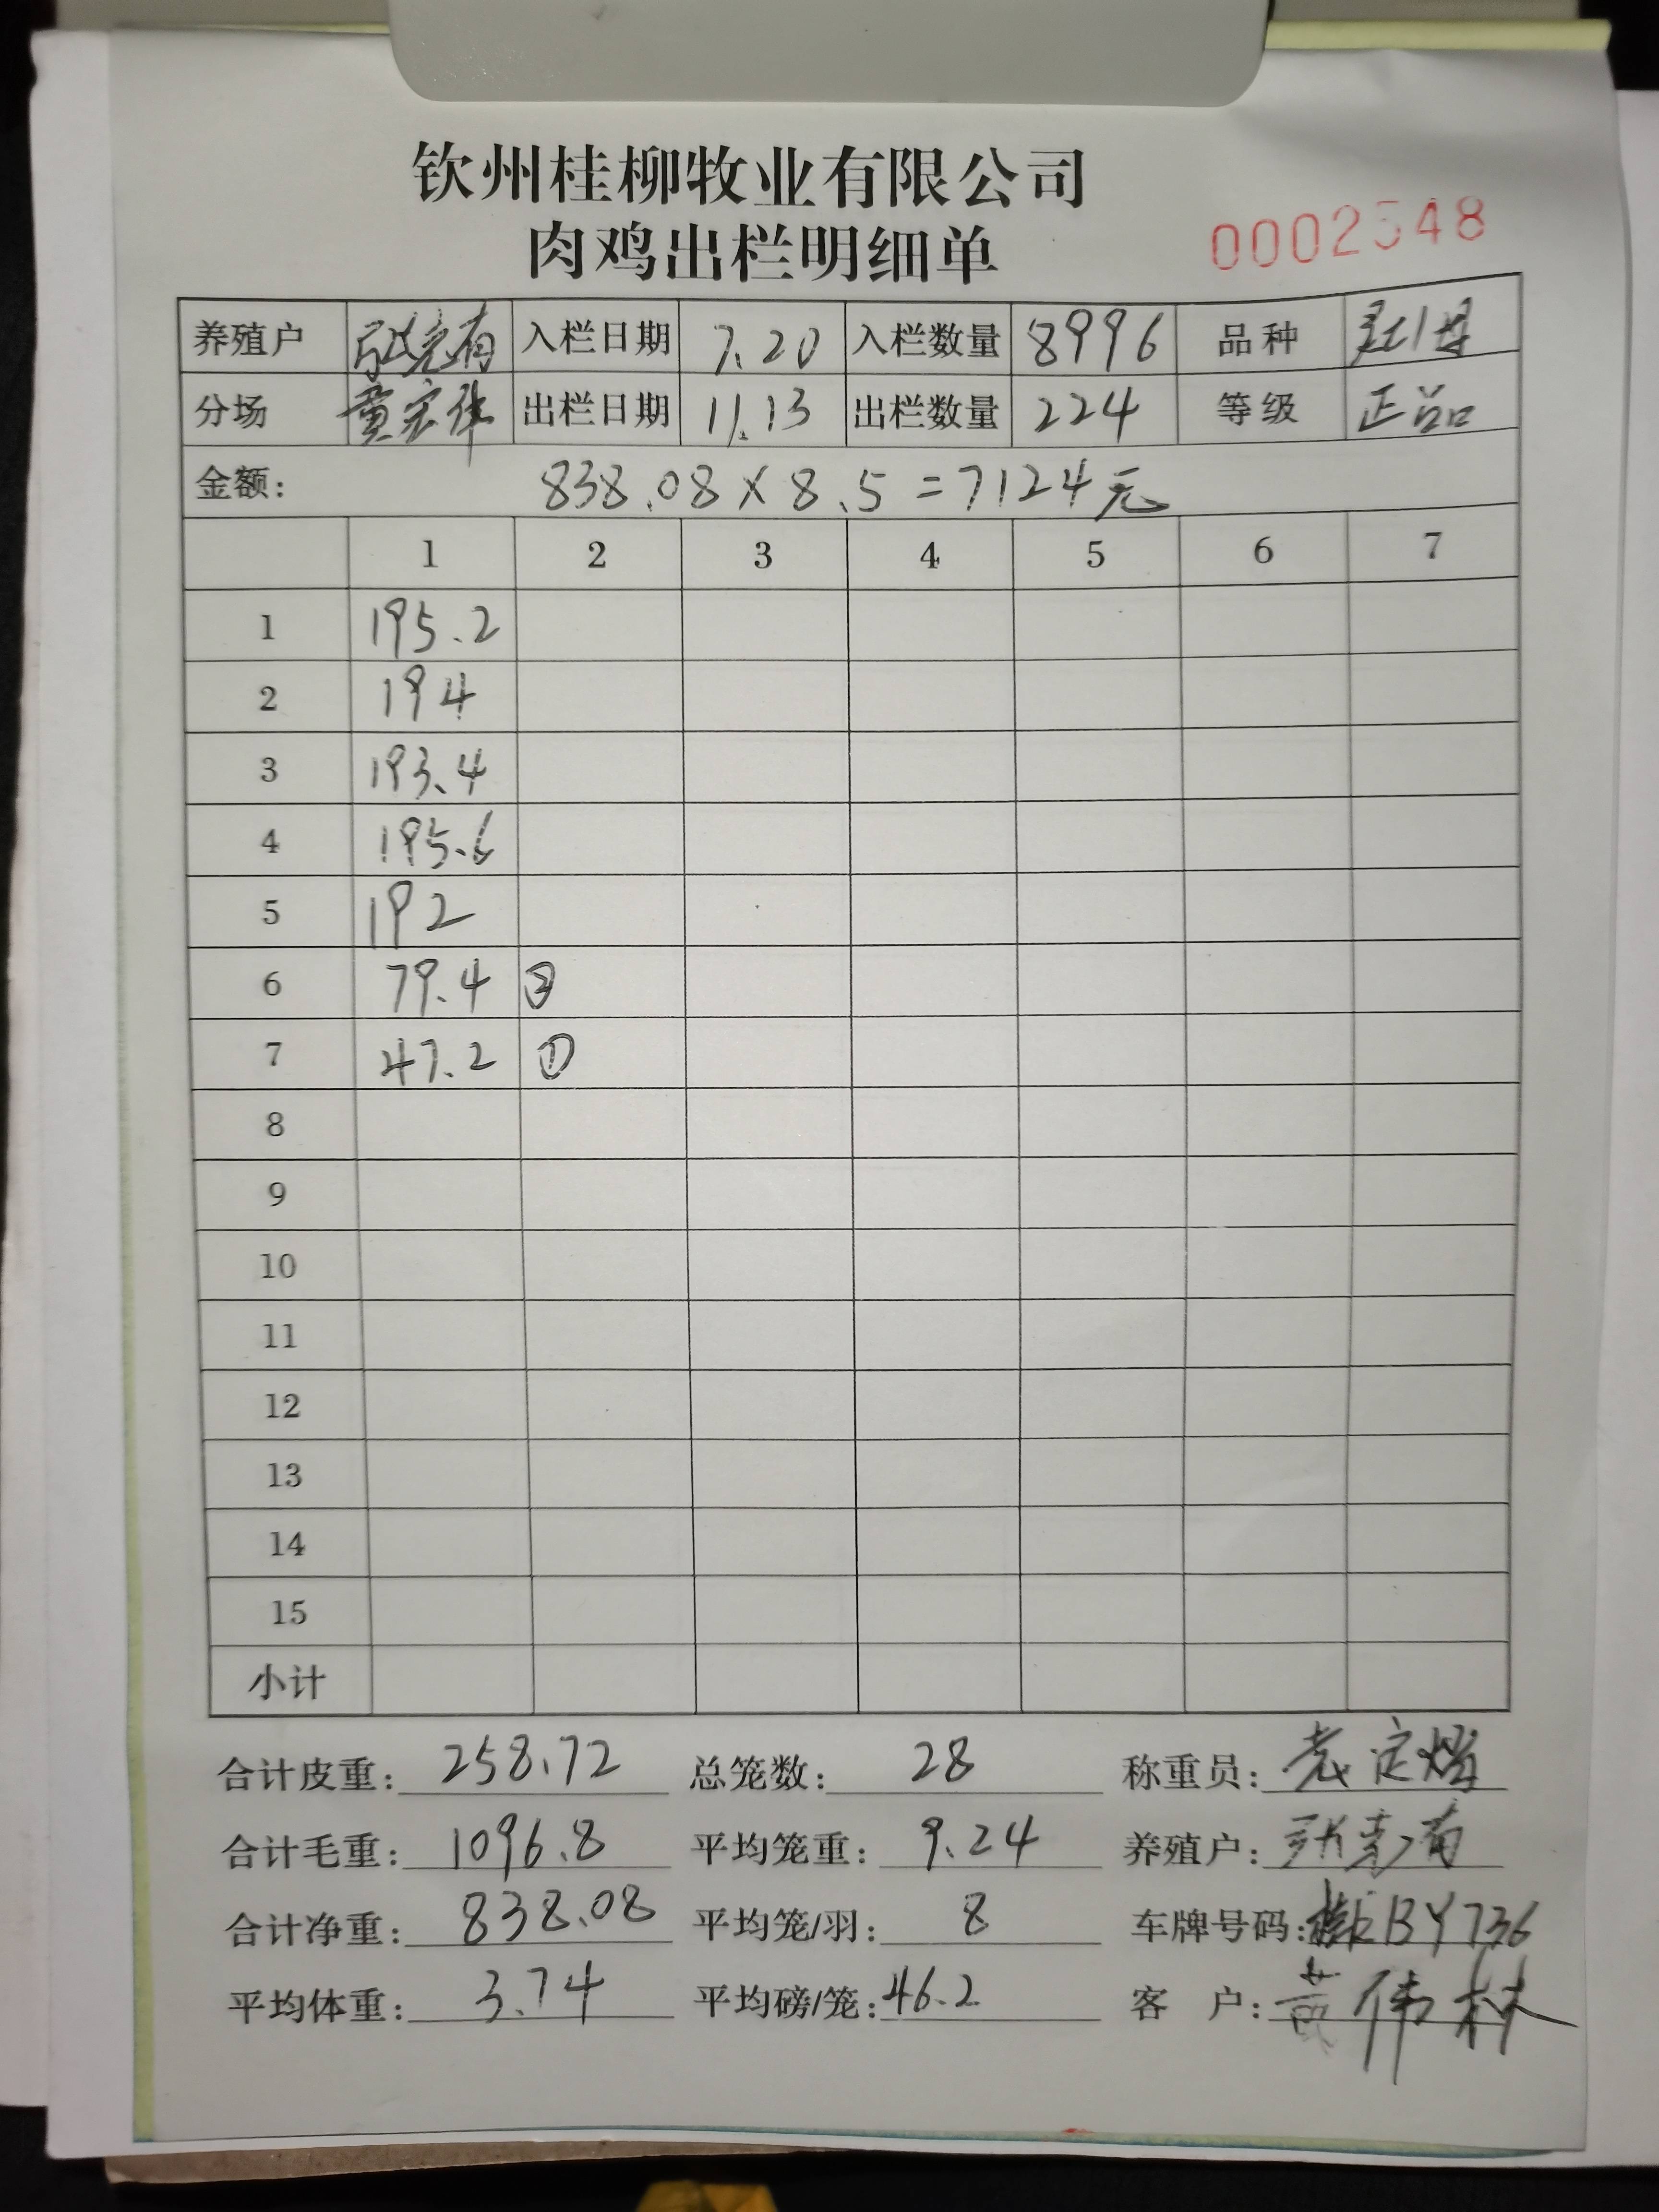 钦州桂柳牧业有限公司
肉鸡出栏明细单
0002548
养殖户 入栏日期 7.20 入栏数量 8996 品种
分场 黄宏华 出栏日期 11.13 出栏数量 224 等级 正品
金额: 838.08×8.5=7124元
1 2 3 4 5 6 7
1 195.2
2 194
3 193.4
4 195.6
5 192
6 79.4 ②
7 47.2 ①
8
9
10
11
12
13
14
15
小计
合计皮重: 258.72 总笼数: 28 称重员:
合计毛重: 1096.8 平均笼重: 9.24 养殖户:
合计净重: 838.08 平均笼/羽: 8 车牌号码: BY736
平均体重: 3.74 平均磅/笼: 46.2 客 户: 黄伟林